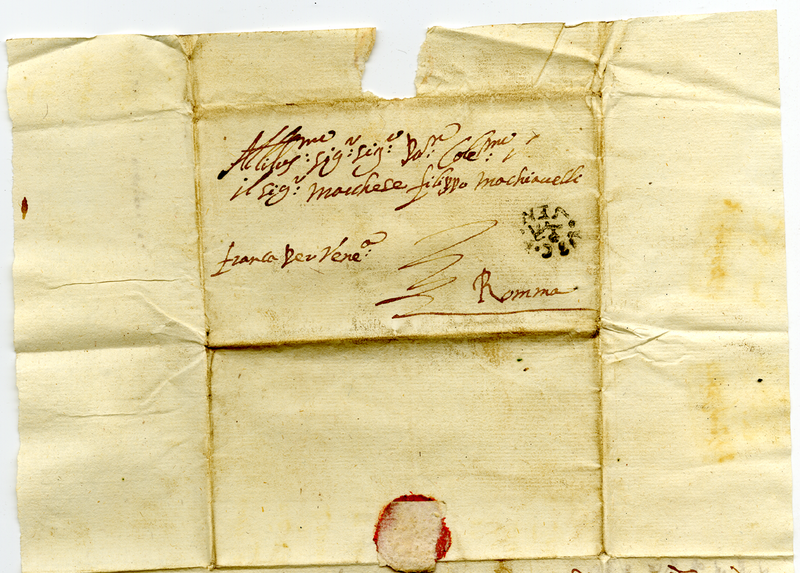 All'Ill.mo Sig.r Sig.r Pa.ne Cole.mo
il Sig.r Marchese Filippo Machiavelli
franca per Vene.a
Romma